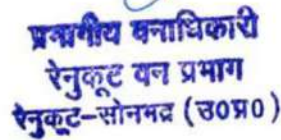 प्रभागीय वनाधिकारी
रेनुकूट वन प्रभाग
रेनुकूट-सोनभद्र (उ०प्र०)